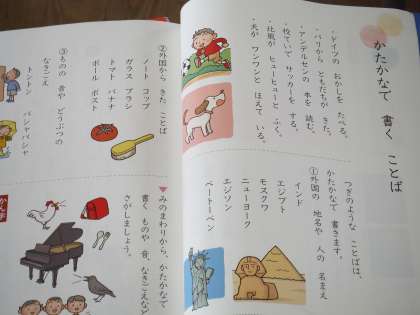 かたかなで 書く ことば
・ドイツの おかしを たべる。
・パリから ともだちが きた。
・アンデルセンの 本を 読む。
・校ていで サッカーを する。
・北風が ヒューヒューと ふく。
・犬が ワンワンと ほえて いる。
つぎのような ことばは、
かたかなで 書きます。
①外国の 地名や 人の 名まえ
インド
エジプト
モスクワ
ニューヨーク
エジソン
ベートーベン
②外国から きた ことば
ノート コップ
ガラス ブラシ
トマト バナナ
ボール ポスト
③ものの 音や どうぶつの
なきごえ
トントン
バシャバシャ
▼みのまわりから、かたかなで
書く ものや 音、なきごえなど
さがしましょう。